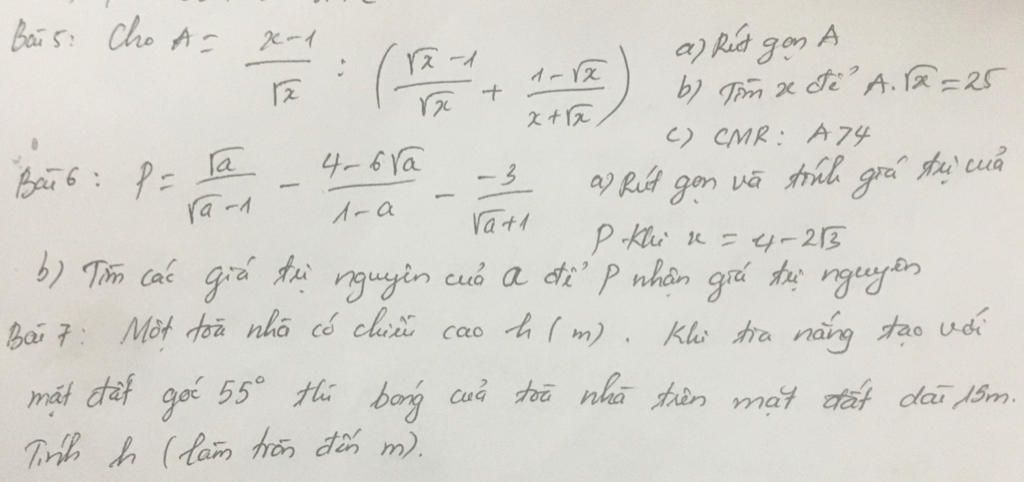 Bài 5: Cho A = \frac{x-1}{\sqrt{x}} : \left(\frac{\sqrt{x}-1}{\sqrt{x}} + \frac{1-\sqrt{x}}{x+\sqrt{x}}\right)
a) Rút gọn A
b) Tìm x để A.\sqrt{x} = 25
c) CMR: A > 4
Bài 6: P = \frac{\sqrt{a}}{\sqrt{a}-1} - \frac{4-6\sqrt{a}}{1-a} - \frac{-3}{\sqrt{a}+1}
a) Rút gọn và tính giá trị của
P khi x = 4-2\sqrt{3}
b) Tìm các giá trị nguyên của a để P nhận giá trị nguyên
Bài 7: Một toà nhà có chiều cao h (m). Khi tia nắng tạo với
mặt đất góc 55° thì bóng của toà nhà trên mặt đất dài 15m.
Tính h (làm tròn đến m).